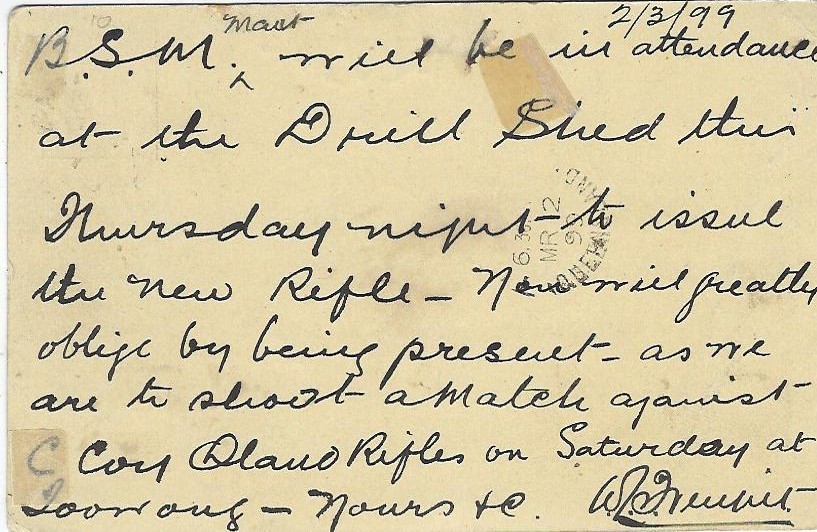 2/3/99
B.S.M. Mact will be in attendance
at the Drill Shed this
Thursday night to issue
the New Rifle – You will greatly
oblige by being present – as we
are to shoot a Match against
C Coy Qland Rifles on Saturday at
Toowong – Yours &c.
6.30
MR 2
99
QUEENSLAND